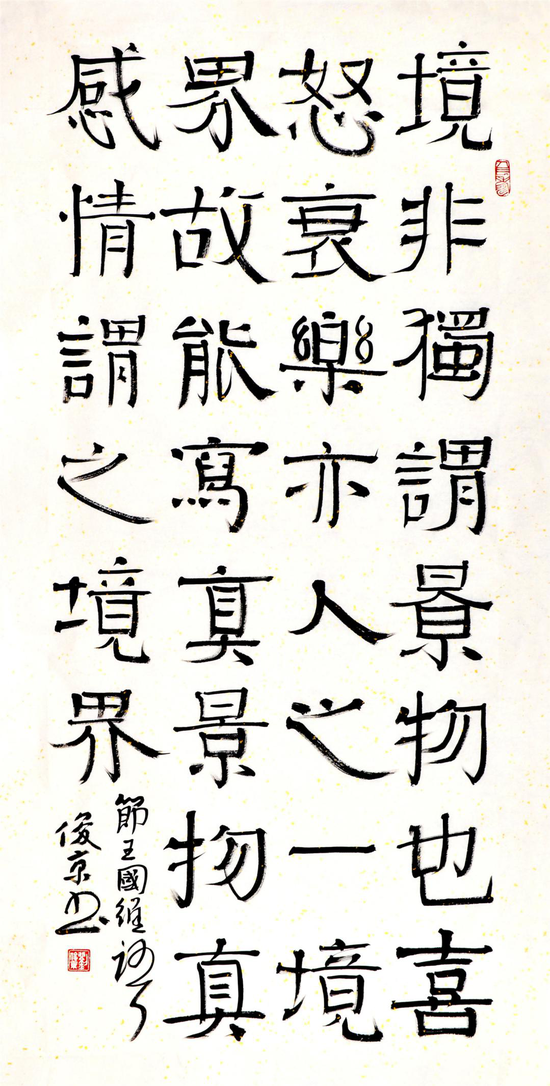 境非獨謂景物也喜
怒哀樂亦人之一境
界故能寫真景物真
感情謂之境界
節王國維詞句
俊京書